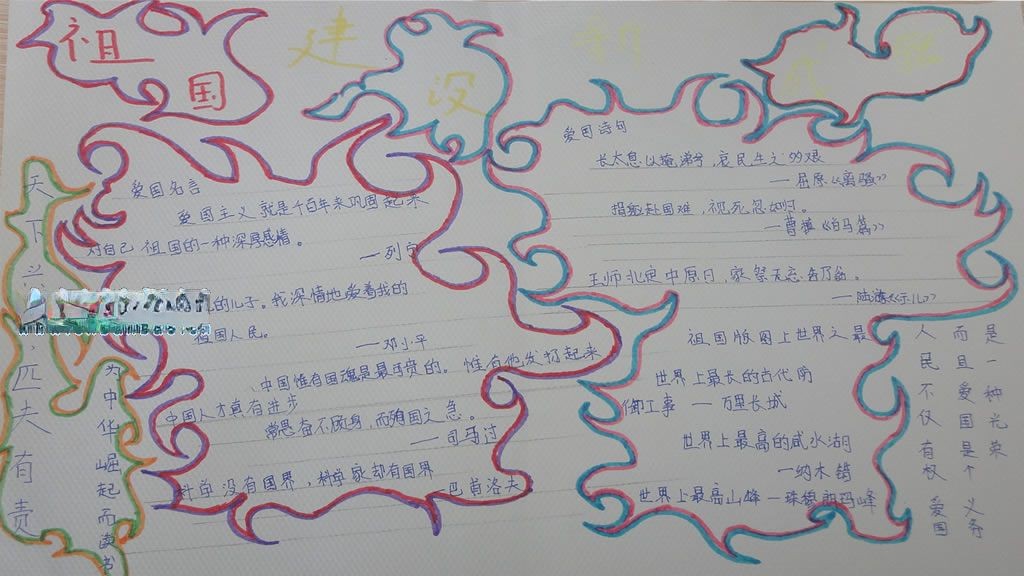 祖国
建设
天下兴
匹夫有责
为中华崛起而读书
爱国名言
爱国主义就是千百年来巩固起来
对自己祖国的一种深厚感情。
—列宁
的儿子。我深情地爱着我的
祖国人民。
—邓小平
中国惟有国魂是最可贵的。惟有他发扬起来
中国人才真有进步
常思奋不顾身,而殉国之急。
—司马迁
科学没有国界,科学家却有国界
巴甫洛夫
爱国诗句
长太息以掩涕兮,哀民生之多艰
—屈原《离骚》
捐躯赴国难,视死忽如归。
—曹植《白马篇》
王师北定中原日,家祭无忘告乃翁。
—陆游《示儿》
祖国版图上世界之最
世界上最长的古代防
御工事—万里长城
世界上最高的咸水湖
—纳木错
世界上最高山峰—珠穆朗玛峰
人民不仅有权爱国
而且爱国是个义务
是一种光荣